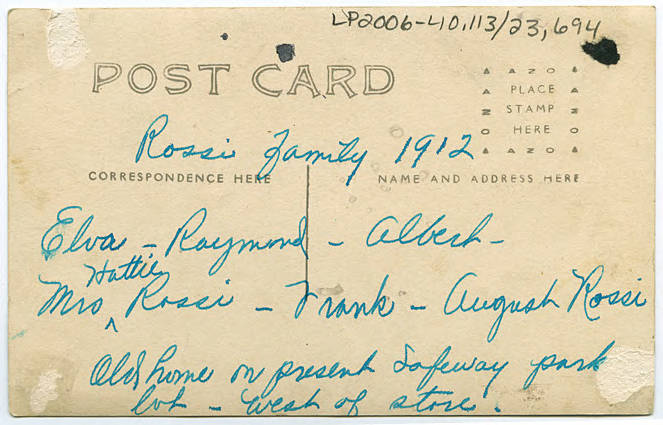 LP2006-40,113/23,694
POST CARD
AZO
PLACE
STAMP
HERE
AZO
Rossi Family 1912
CORRESPONDENCE HERE
NAME AND ADDRESS HERE
Elva - Raymond - Albert -
Hattie
Mrs ^ Rossi - Frank - August Rossi
Old home on present Safeway park
lot - west of store.